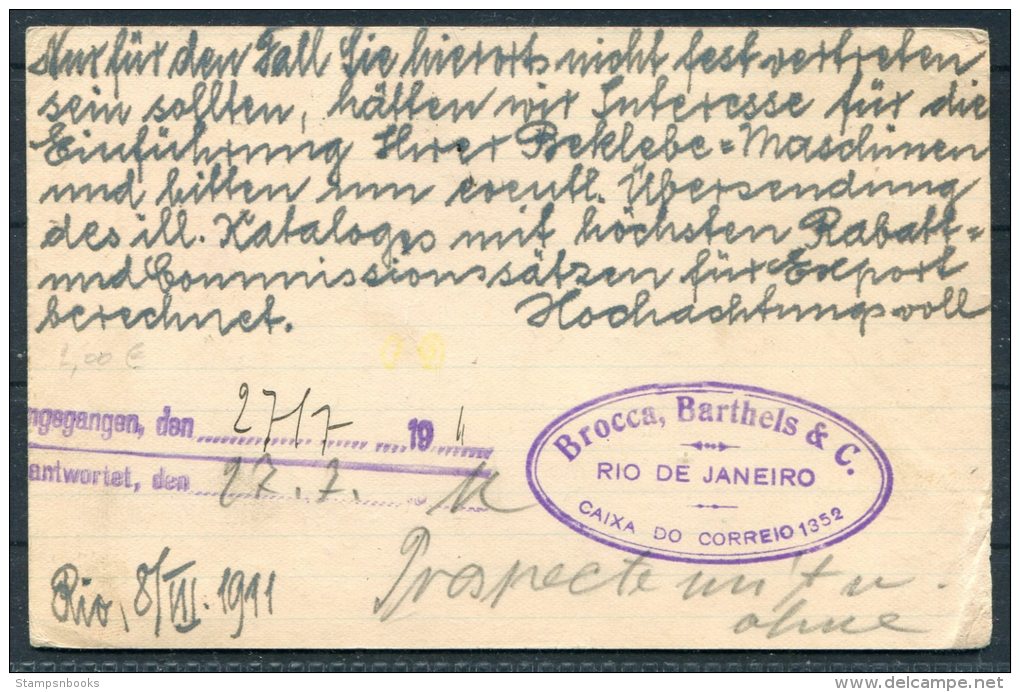 Nur für den Fall Sie hierorts nicht fest vertreten
sein sollten, hätten wir Interesse für die
Einführung Ihrer Beklebe=Maschinen
und bitten um eventl. Übersendung
des ill. Kataloges mit höchsten Rabatt=
und Commissionssätzen für Export
berechnet. Hochachtungsvoll
1,00 €
ngegangen, den 27/7 1911
antwortet, den 27.7. 11
Brocca, Barthels & C.
RIO DE JANEIRO
CAIXA DO CORREIO 1352
Rio, 8/VII. 1911
Prospecte mit u
ohne
Stampsnbooks
www.delcampe.net